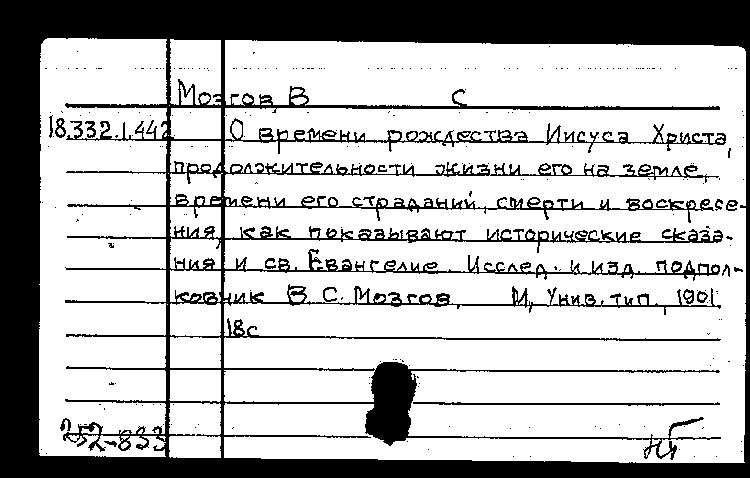 Мозгов, В С
18.332.1.442 О времени рождества Иисуса Христа,
продолжительности жизни его на земле,
времени его страданий, смерти и воскресе-
ния, как показывают исторические сказа-
ния и св. Евангелие. Исслед. и изд. подпол-
ковник В. С. Мозгов. М, Унив. тип., 1901.
18с
252-833